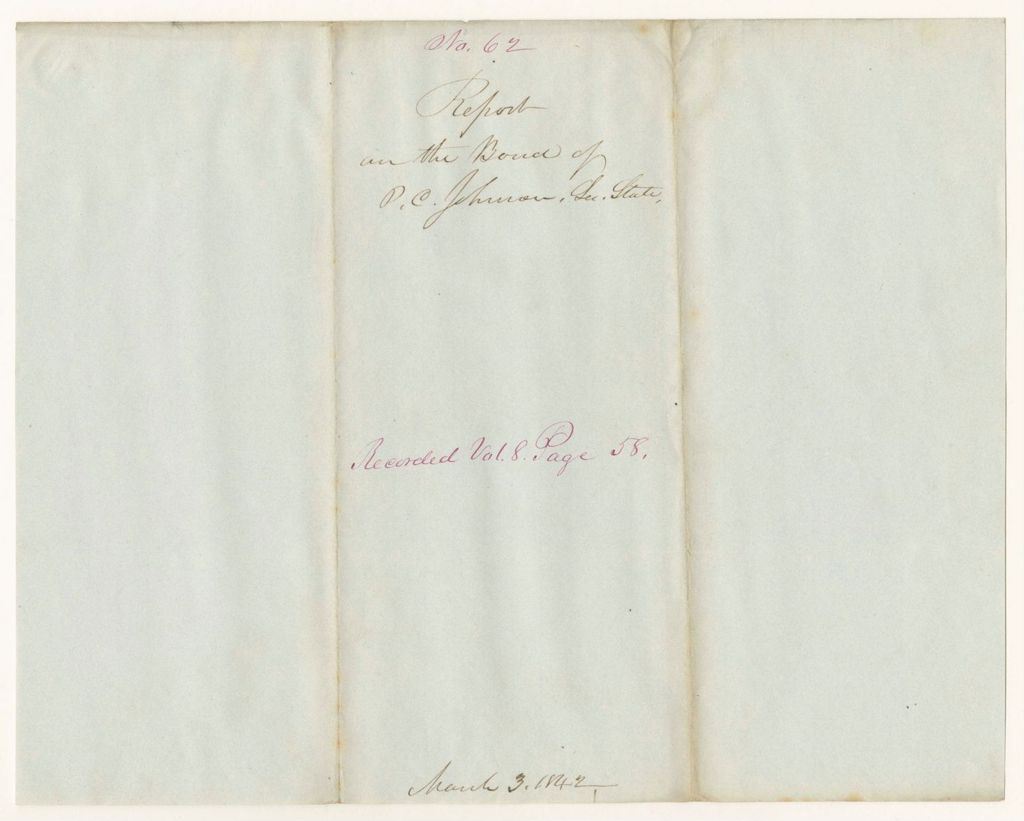 No. 62
Report
on the Bond of
P. C. Johnson, Sec. State,
Recorded Vol. 8. Page 58.
March 3. 1842